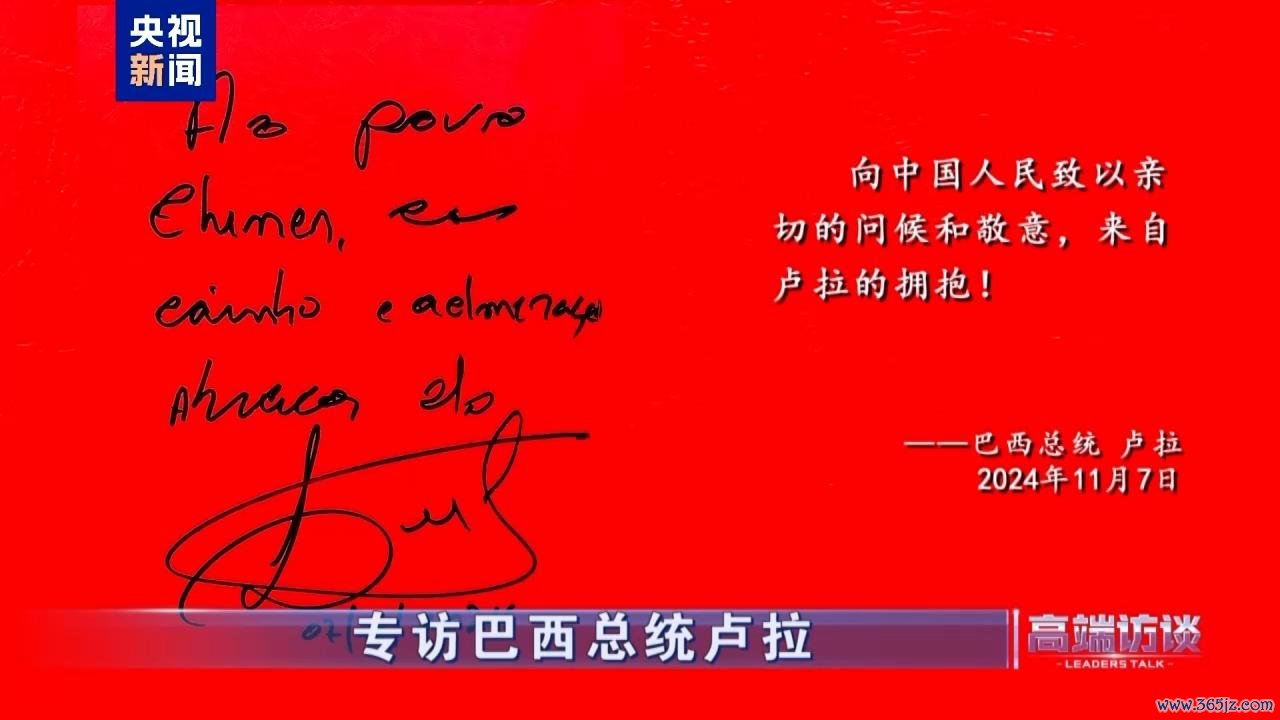 央视
新闻
Ao povo
Chines, com
carinho e admiração
Abraços do
Lula
向中国人民致以亲
切的问候和敬意，来自
卢拉的拥抱！
——巴西总统 卢拉
2024年11月7日
专访巴西总统卢拉
高端访谈
-LEADERS TALK-
www.365jz.com